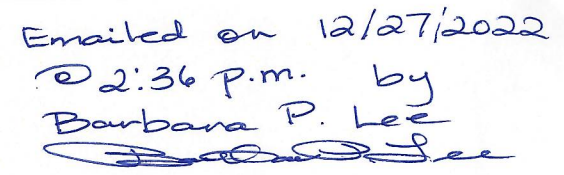 Emailed on 12/27/2022
@ 2:36 p.m. by
Barbara P. Lee
Barbara P. Lee